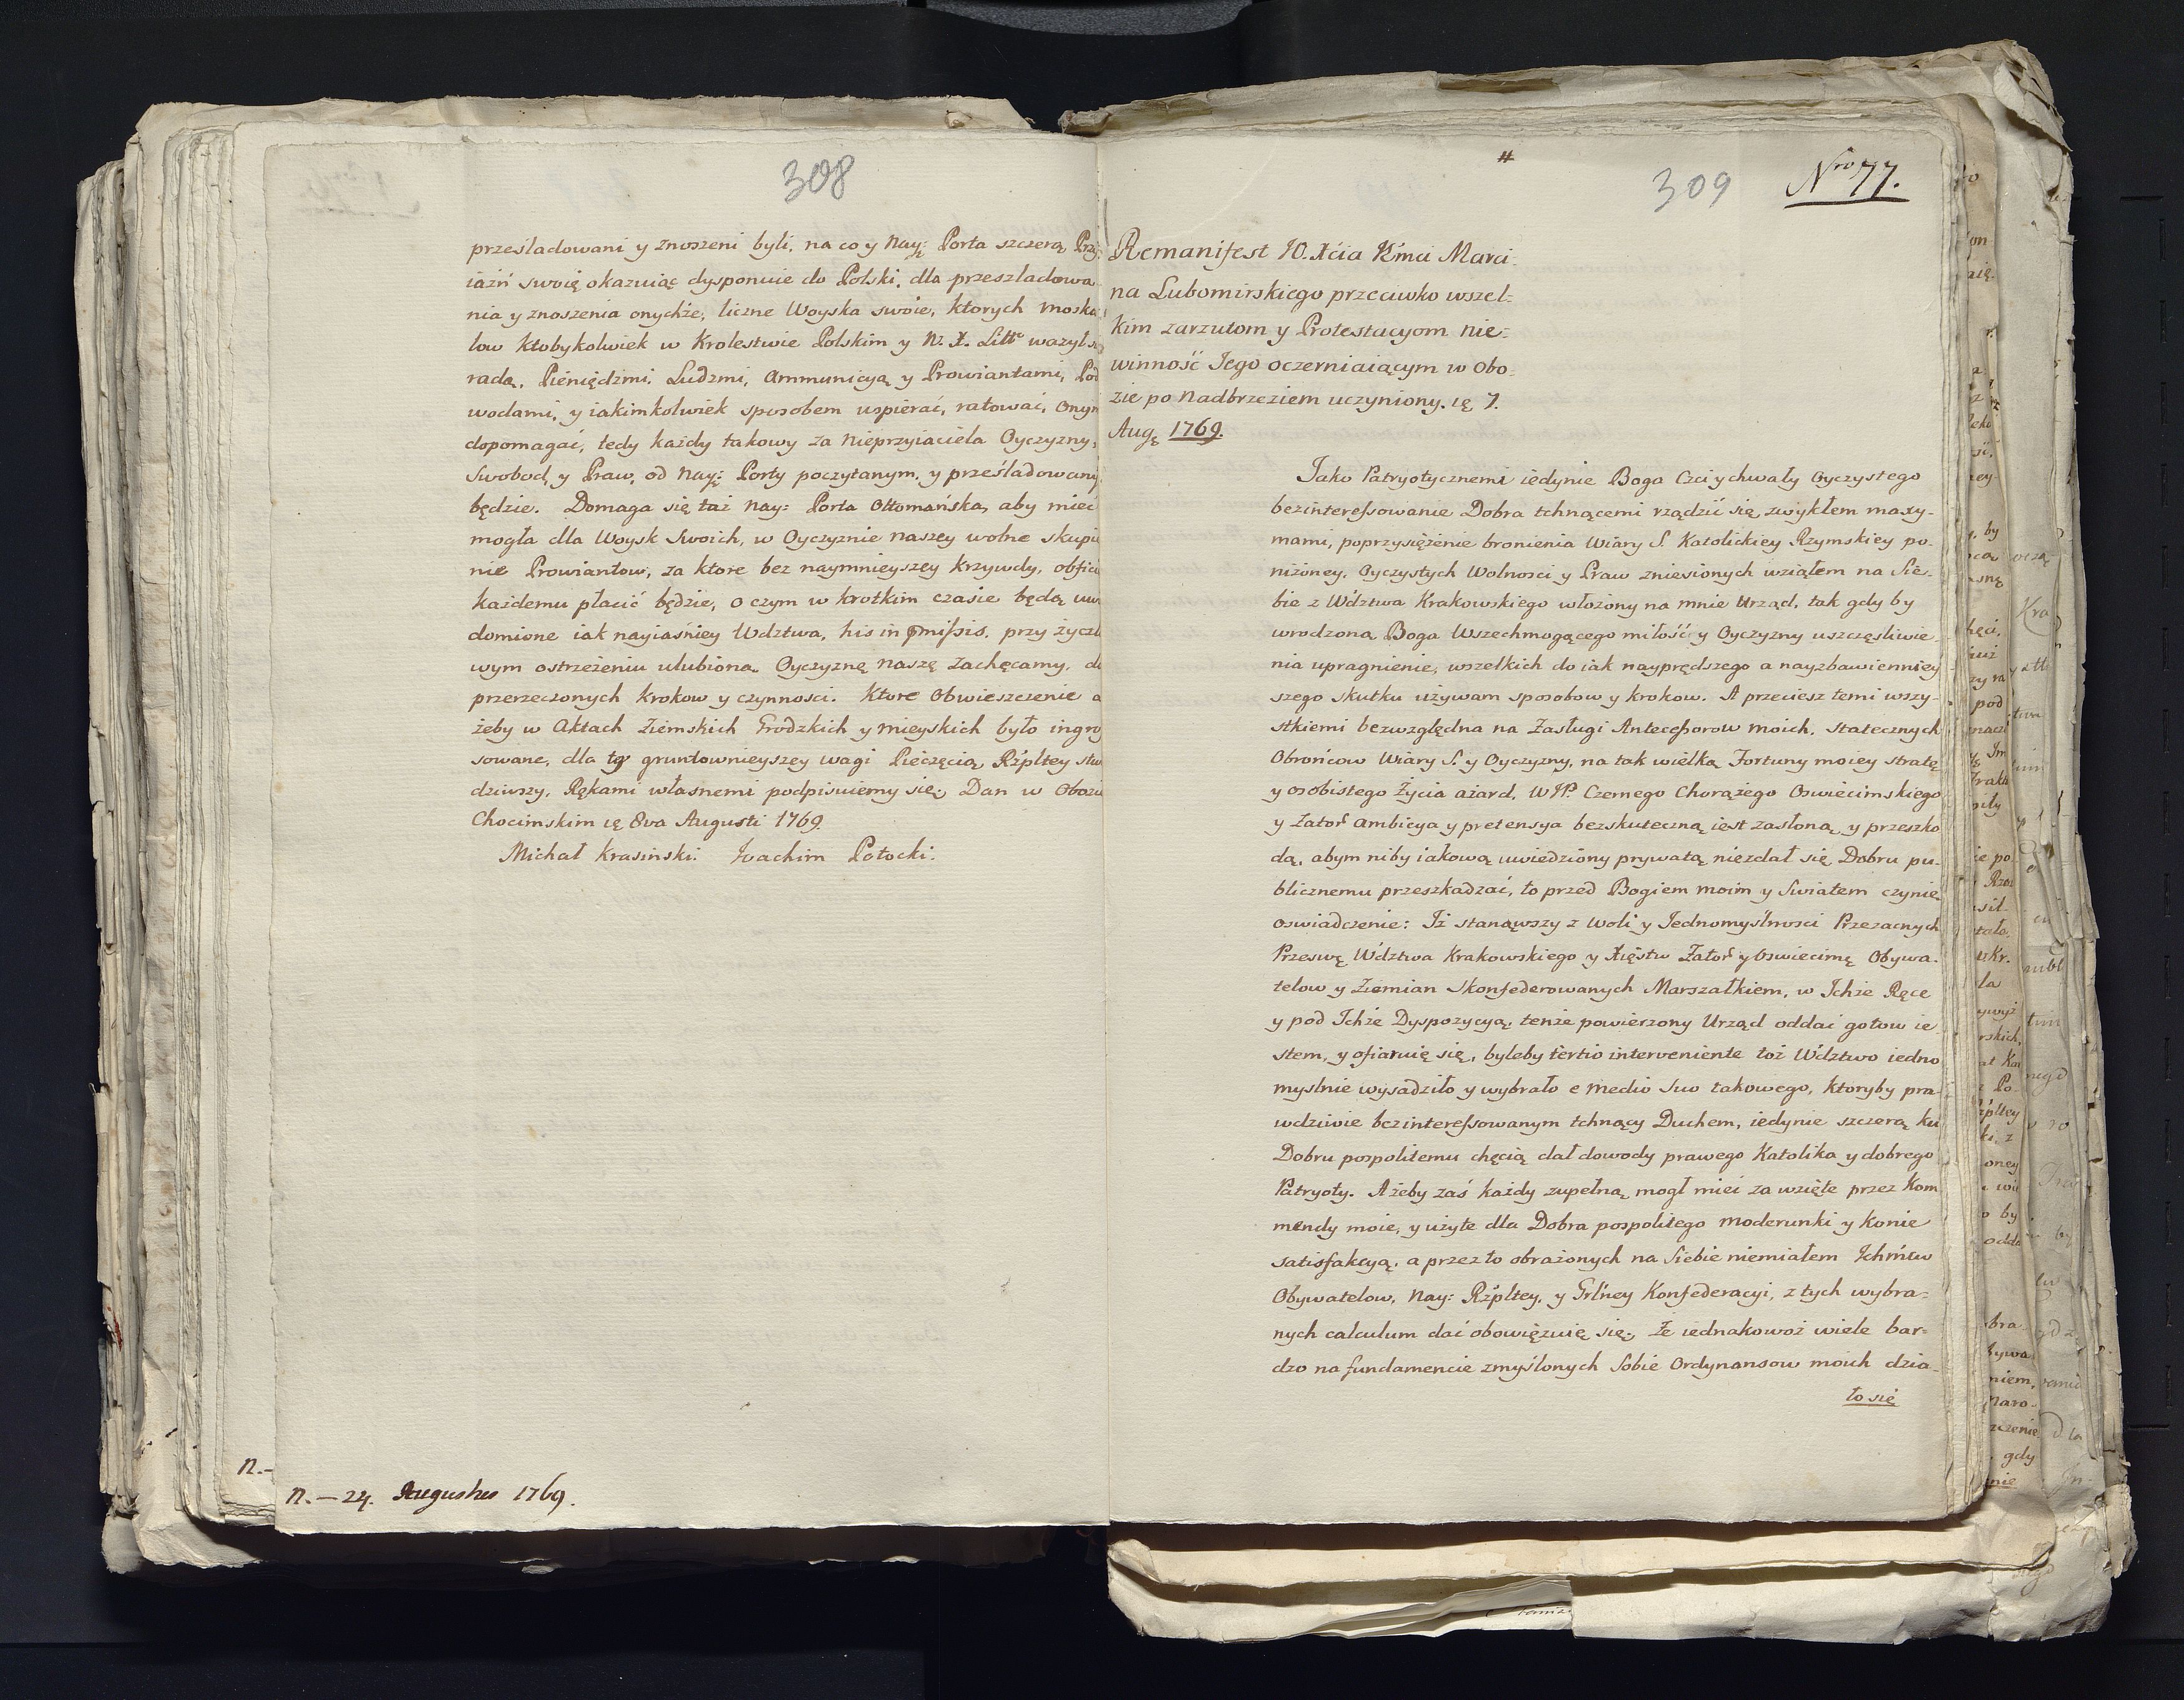 308
prześladowani y znoszeni byli, na co y Nayę: Porta szczerą Przy
iaźń swoię okazuiąc dysponuie do Polski, dla przeszladowa
nia y znoszenia onychże, liczne Woyska swoie, ktorych Moska
low ktobykolwiek w Krolestwie Polskim y W. X. Litt° ważył si
radą, Pieniędzmi, Ludzmi, Ammunicyą y Prowiantami, Pod
wodami, y iakimkolwiek sposobem wspierać, ratować, onym
dopomagać, tedy każdy takowy za Nieprzyiaciela Oyczyzny,
Swobod, y Praw, od Nayę: Porty poczytanym, y prześladowany
będzie. Domaga się taż Nay: Porta Ottomańska, aby mieć
mogła dla Woysk Swoich, w Oyczyznie naszey wolne skupie
nie Prowiantow, za ktore bez naymnieyszey krzywdy, obfic
każdemu płacić będzie, o czym w krotkim czasie będą uw
domione iak nayiaśniey Wdztwa, his in pmissis, przy życzl
wym ostrzeżeniu ulubioną Oyczyznę naszę zachęcamy, do
przerzeczonych krokow y czynnosci. Ktore Obwieszczenie a
żeby w Aktach Ziemskich Grodzkich y mieyskich było ingro
sowane, dla tey gruntownieyszey wagi Pieczęcią Rzpltey stw
dziwszy, Rękami własnemi podpisuiemy się. Dan w Obozie
Chocimskim ię 8va Augusti 1769.
Michał Krasinski. Joachim Potocki.
n.-
n.—24. Augustus 1769.
309 Nro 77.
Remanifest JO. Xcia Jmci Marci-
na Lubomirskiego przeciwko wszel-
kim zarzutom y Protestacyom nie-
winność Jego oczerniaiącym w Obo-
zie po Nadbrzeziem uczyniony. ię 7.
Augę 1769.
Jako Patryotycznemi iedynie Boga Czci y chwały Oyczystego
bezinteressowanie Dobra tchnącemi rządzić się zwykłem maxy-
mami, poprzysiężenie bronienia Wiary S. Katolickiey Rzymskiey po-
niżoney, Oyczystych Wolnosci y Praw zniesionych wziąłem na Sie-
bie z Wdztwa Krakowskiego włożony na mnie Urząd, tak gdy by
wrodzona Boga Wszechmogącego miłość y Oyczyzny uszczęsliwie-
nia upragnienie, wszelkich do iak nayprędszego a nayzbawienniey
szego skutku używam sposobow y krokow. A przeciesz temi wszy-
stkiemi bezwzględna na Zasługi Antecessorow moich, statecznych
Obrońcow Wiary S. y Oyczyzny, na tak wielką Fortuny moiey stratę
y osobistego Życia ażard, WJP. Czernego Chorążego Oswiecimskiego
y Zator Ambicya y pretensya bezskuteczną iest zasłoną y przeszko
dą, abym niby iakową uwiedziony prywatą niezdał się Dobru pu-
blicznemu przeszkadzać, to przed Bogiem moim y Swiatem czynię
oswiadczenie: Iż stanąwszy z woli y Jednomyślnosci Przezacnych
Przeswę Wdztwa Krakowskiego y Xięstw Zator y Oswiecimę Obywa-
telow y Ziemian Skonfederowanych Marszałkiem, w Ichże Ręce
y pod Ichże Dyspozycyą, tenże powierzony Urząd oddać gotow ie-
stem, y ofiaruię się, byleby tertio interveniente toż Wdztwo iedno
myslnie wysadziło y wybrało e medio Suo takowego, ktoryby pra-
wdziwie bezinteressowanym tchnący Duchem, iedynie szczerą ku
Dobru pospolitemu chęcią dał dowody prawego Katolika y dobrego
Patryoty. Ażeby zaś każdy zupełną mogł mieć za wzięte przez Kom
mendy moie, y użyte dla Dobra pospolitego moderunki y Konie
satisfakcyą, a przez to obrażonych na Siebie niemiałem Ichmciw
Obywatelow, Nay: Rzpltey, y Grlney Konfederacyi, z tych wybra-
nych calculum dać obowięzuię się. Że iednakowoż wiele bar-
dzo na fundamencie zmyślonych Sobie Ordynansow moich dzia-
ło się